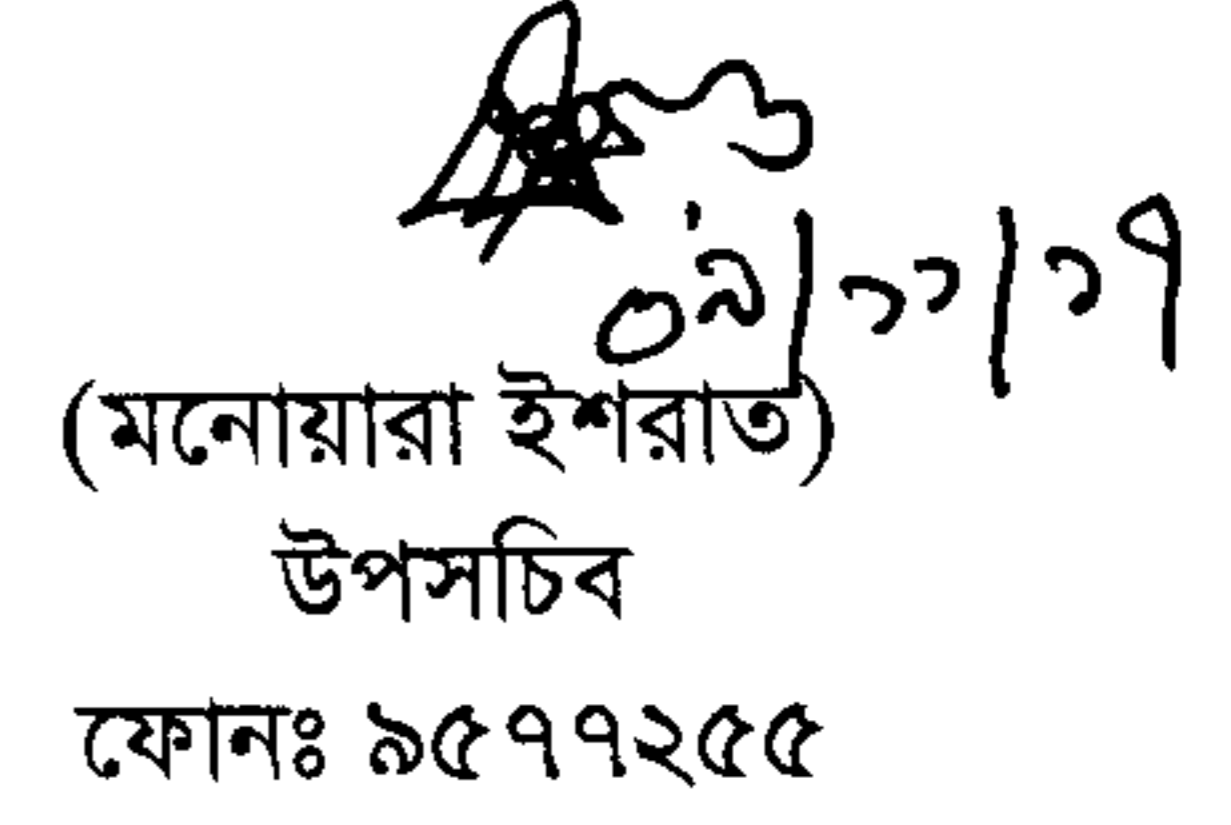 ০৯/১১/১৭
(মনোয়ারা ইশরাত)
উপসচিব
ফোনঃ ৯৫৭৭২৫৫